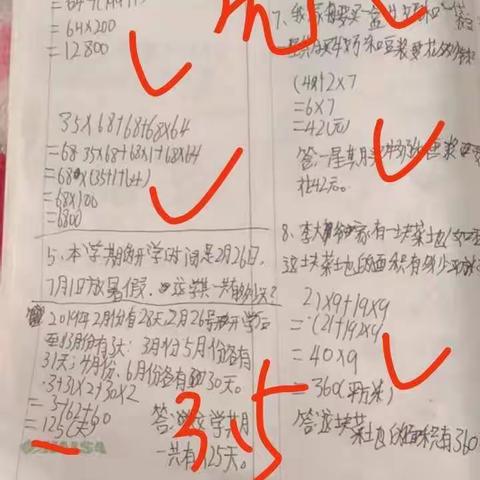 =64×200
=12800
35×68+68+68×64
=68×35×68+68×1+68×64
=68×(35+1+64)
=68×100
=6800
5、本学期的开学时间是2月26日,
7月1日放暑假,这学期一共有多少天?
2019年2月份有28天,2月26号开学后
至3月份有3天;3月份5月份各有
31天;4月份、6月份各有30天。
3+31×2+30×2
=3+62+60
=125(天)
答:这学期
一共有125天。
3.5
7、我家每天买一盒牛奶和一袋
(4+2)×7
=6×7
=42(元)
花42元。
8、李大爷家有一块菜地
这块菜地的面积有多少平方
21×9+19×9
=(21+19)×9
=40×9
=360(平方米)
答:这块
菜地的面积有360